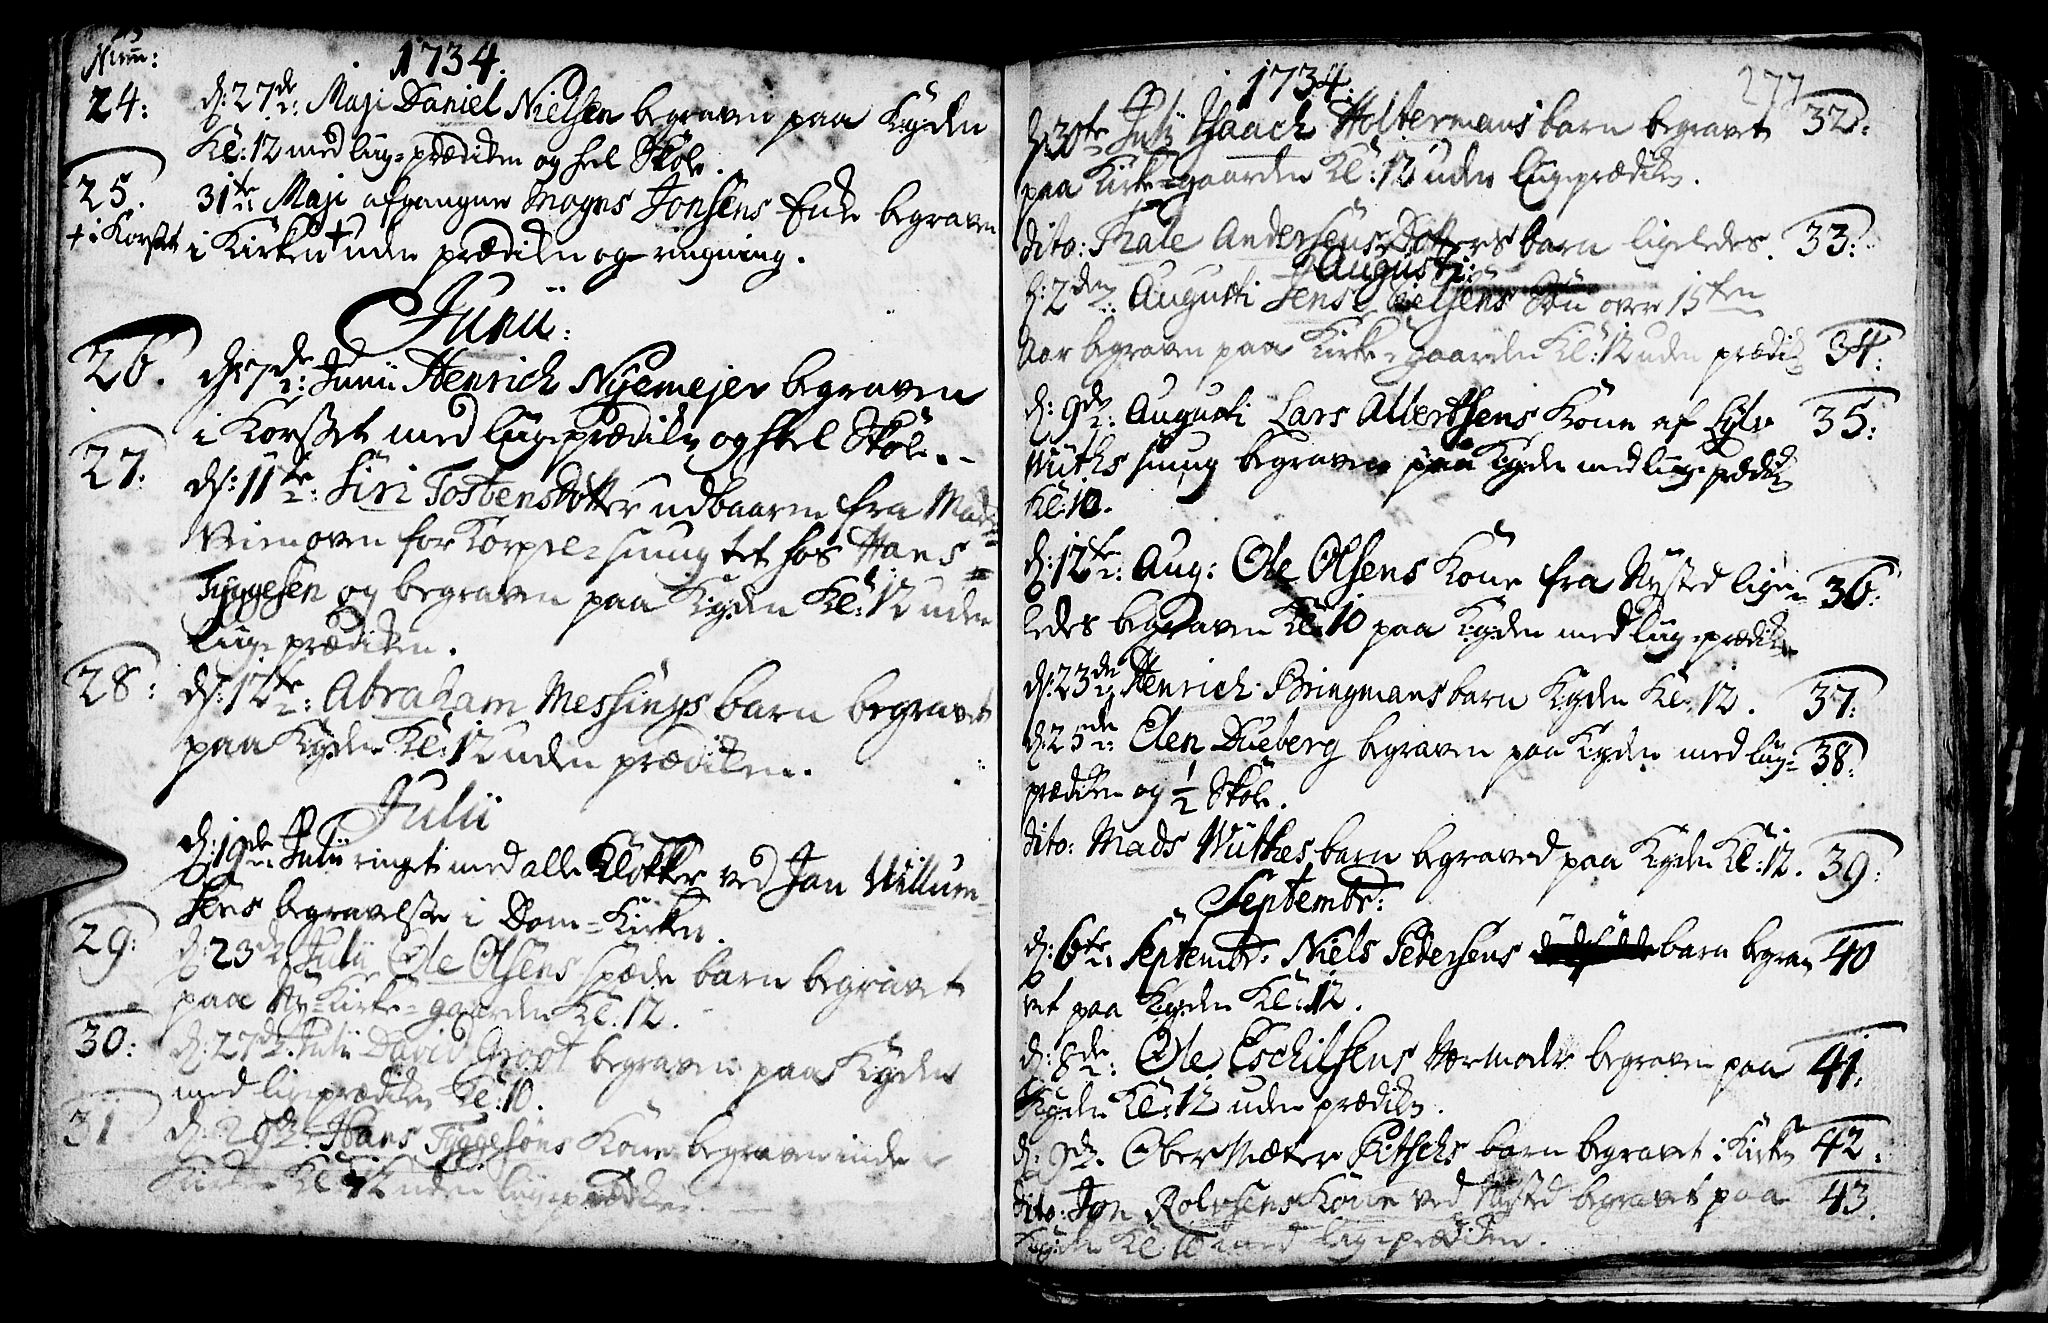 Num:
1734.
24: d: 27de: Maji Daniel Nielsen begraven paa Kgden
Kl: 12 med liig-prædiken og heel Skole.
25. 31te: Maji afgangne Mogns Jonsens Enke begraven
+ i Korset i Kirken + uden prædiken og ringning.
Junii:
26. d: 7de: Junii Henrich Nyemejer begraven
i Korsset med liigeprædiken og heel Skole.
27: d: 11te: Siri Tostensdotter udbaaren fra Mads
for Korpset hos Hans
Tyggesen og begraven paa Kgden Kl: 12 uden
liigeprædiken.
28: d: 12te: Abraham Messings barn begravet
paa Kgden Kl: 12 uden prædiken.
Julii
d: 19de Julii ringet med alle Klokker ved Jan Willum-
sens begravelse i Dom-Kirken.
29: d: 23de Julii Ole Olsens spæde barn begravet
paa Ny-Kirke-gaarden Kl: 12.
30: d: 27de Julii David Groot begraven paa Kgden
med ligeprædiken Kl: 10.
31 d: 29de Hans Tyggesøns Kone begraven inde
Kirken Kl: 12 uden liigeprædiken.
1734.
277
d: 30te Julii Isaach Holtermans barn begravet 32:
paa Kirke-gaarden Kl: 12 uden liigeprædiken.
dito: Thale Andersens Dotters barn ligeledes. 33:
Augusti:
d: 2den: Augusti Jens Nelsens Søn over 15ten
Aar begraven paa Kirke-gaarden Kl: 12 uden prædik 34:
d: 9de: Augusti Lars Albertsens Kone af
Wüths smug begraven paa Kgden med liigeprædik 35:
Kl: 10.
d: 12te: Aug: Ole Olsens Kone fra Nysted lige- 36:
ledes begraven Kl: 10 paa Kgden med liig-prædiken
d: 23de Henrich Bringmans barn Kgden Kl: 12. 37:
d: 25de: Elen Dueberg begraven paa Kgden med liig- 38:
prædiken og 1/2 Skole.
dito: Mads Wüthes barn begraved paa Kgden Kl: 12. 39:
Septembr:
d: 6te: Septembr: Niels Pedersens barn begra- 40
vet paa Kgden Kl: 12.
d: 8de: Ole Eschilsens Værmoder begraven paa 41:
Kgden Kl: 12 uden prædiken.
d: 9de. Ober Mæker Pitschs barn begravet i Kirken 42:
dito: Jon Rolvsens Kone ved Nysted begravet paa 43.
Kgden Kl: 12 med liigeprædiken.